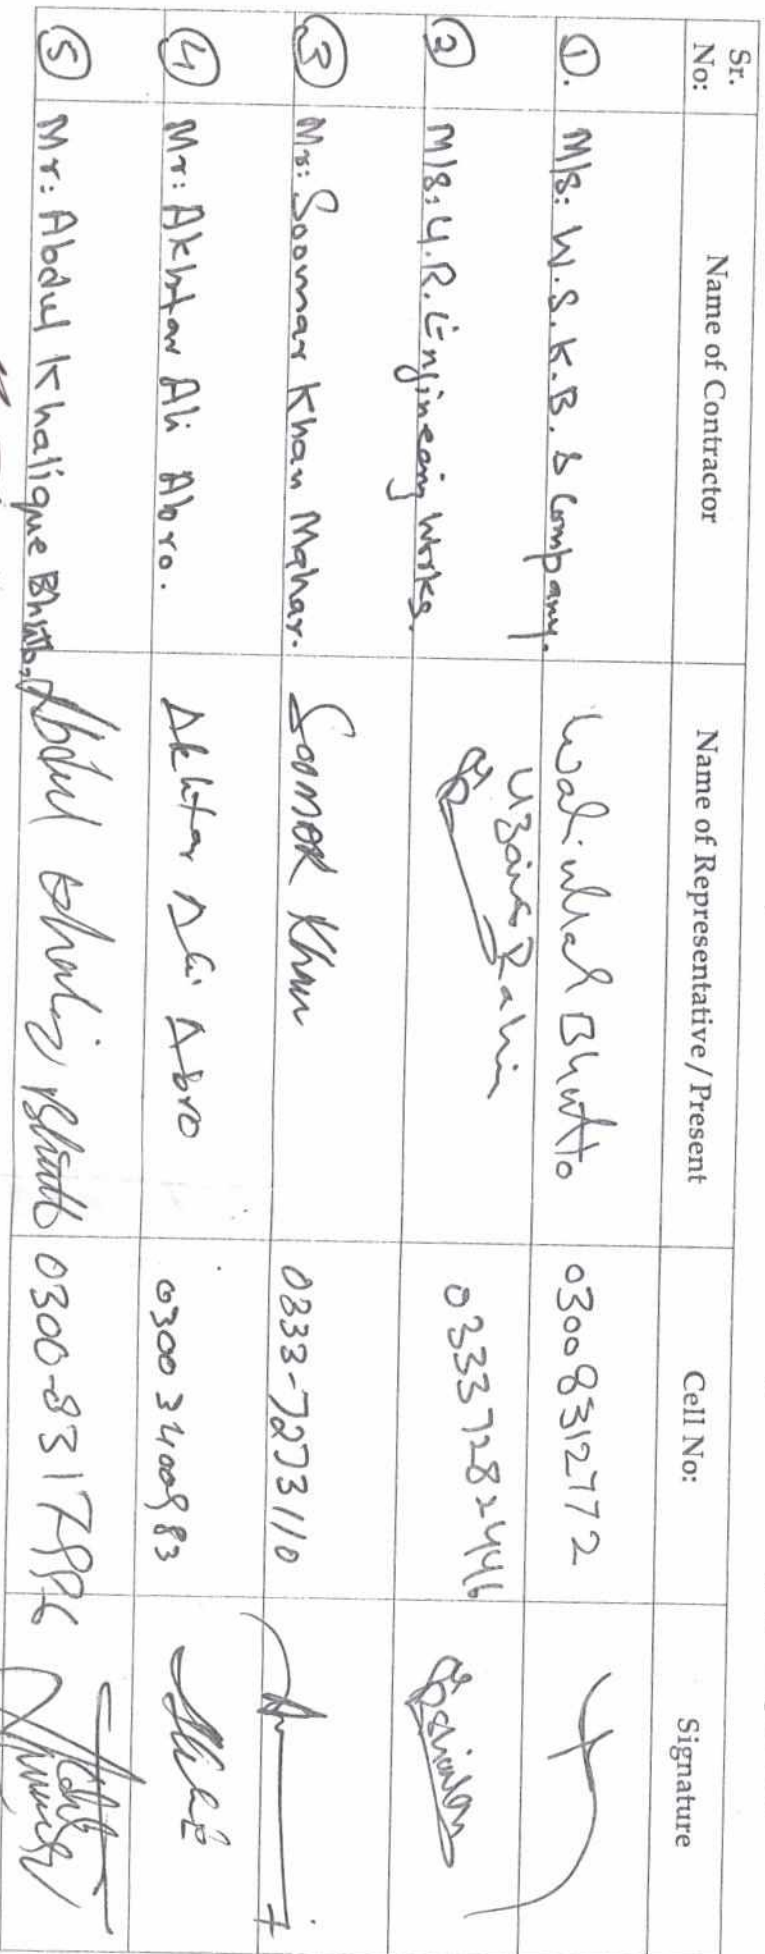 Sr. No: Name of Contractor Name of Representative / Present Cell No: Signature
①. M/S: W.S.K.B. & Company. Waliullah Bhutto 03008312772
② M/S: U.R. Engineering Works. Uzair Rahim 03337282446
③ Mr: Soomar Khan Mahar. Soomar Khan 0333-7273110
④ Mr: Akhtar Ali Abro. Akhtar Ali Abro 03003400983
⑤ Mr: Abdul Khalique Bhutto, Abdul Khaliq Bhutto 0300-8317886